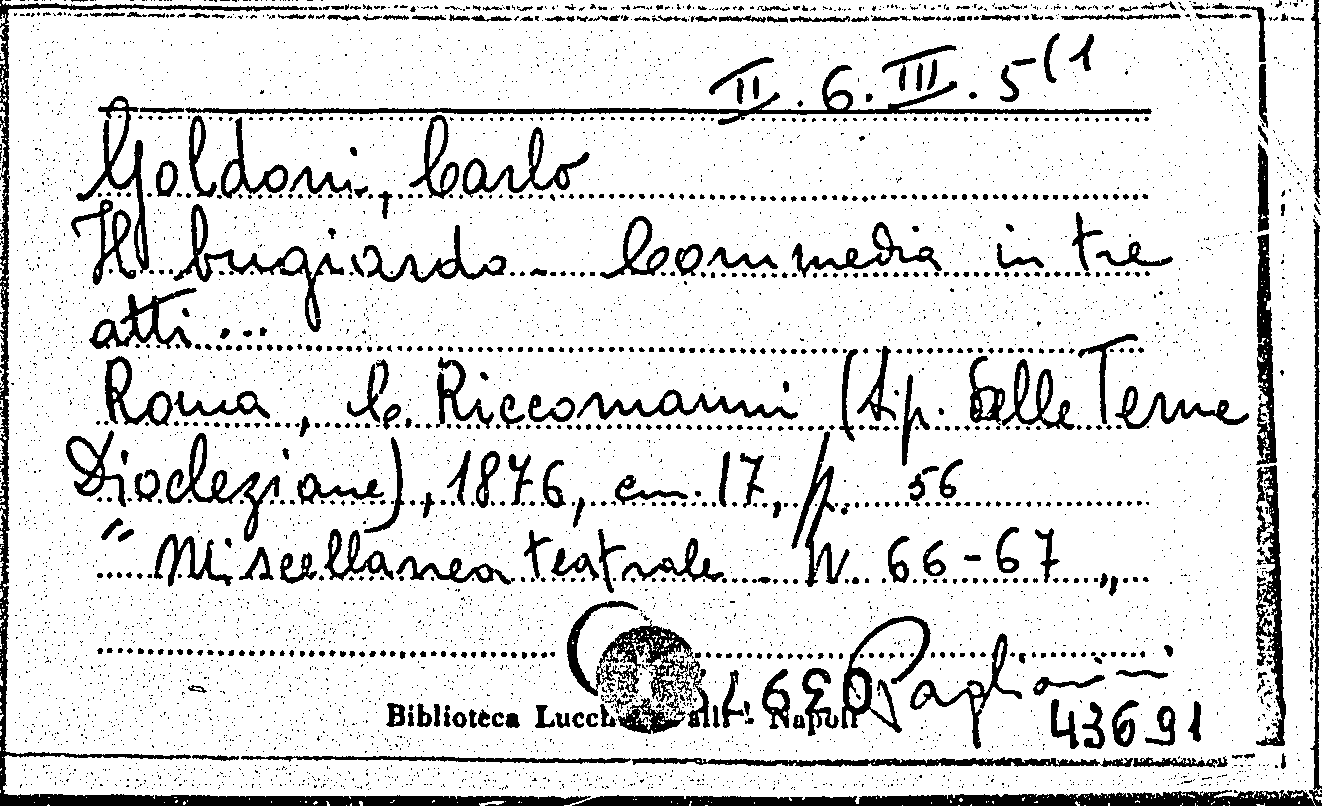 II. 6. III. 5(1
Goldoni, Carlo
Il bugiardo. Commedia in tre
atti...
Roma, C. Riccomanni (tip. delle Terme
Diocleziane), 1876, cm. 17, p. 56
"Miscellanea teatrale N. 66-67„
Paglia
Biblioteca Lucchesi Palli - Napoli
43691